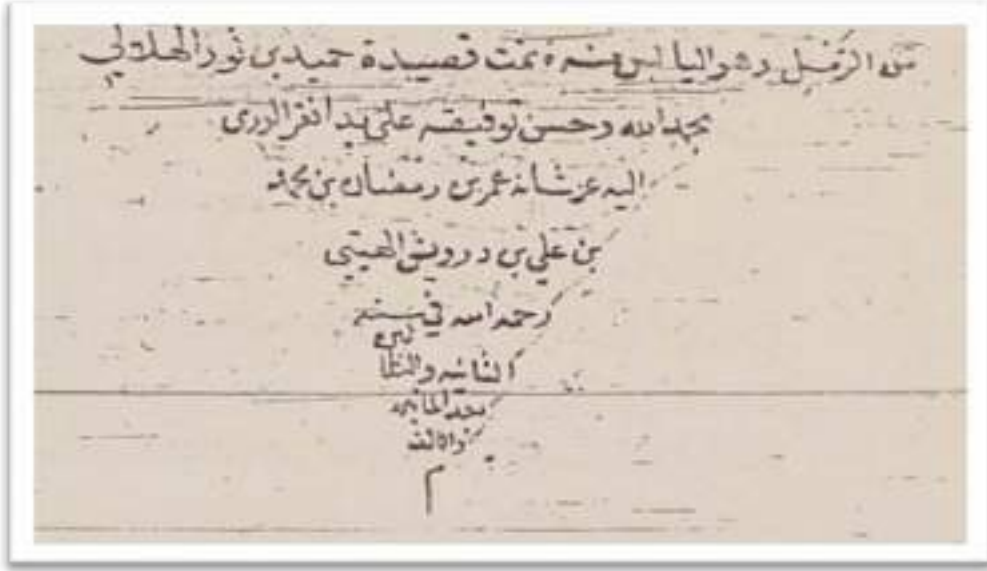 من الرمل وهو اليابس منه تمت قصيدة حميد بن ثور الهلالي
بحمد الله وحسن توفيقه على يد افقر الورى
اليه عز شانه عمر بن رمضان بن محمد
بن علي بن درويش الهيتي
رحمه الله في سنه
الثانيه والثلا
ثين
بعد المايه
والالف
م